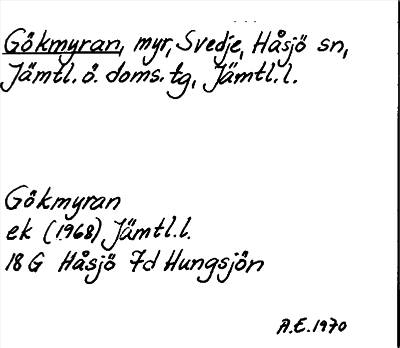 Gökmyran, myr, Svedje, Håsjö sn,
Jämtl. ö. doms. tg, Jämtl. l.
Gökmyran
ek (1968) Jämtl. l.
18 G Håsjö 7d Hungsjön
A.E. 1970